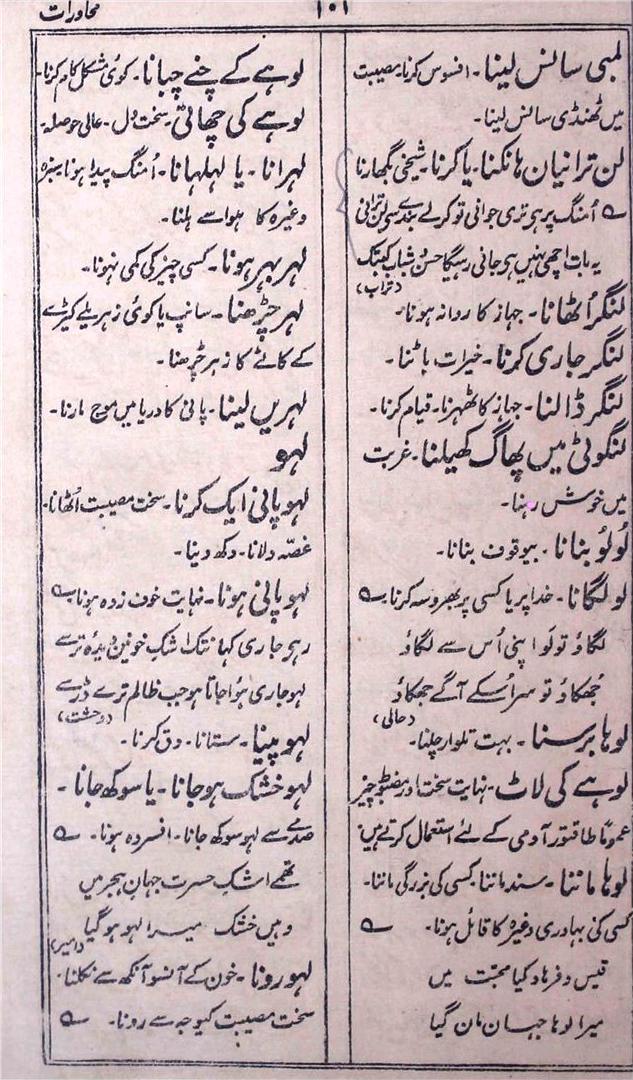 محاورات
۱۰۱
لمبی سانس لینا۔ افسوس کرنا۔ مصیبت
میں ٹھنڈی سانس لینا۔
لن ترانیاں ہانکنا۔ یا کرنا۔ شیخی بگھارنا
؎ اُمنگ پر ہی تری جوانی تو کرلے بندے سی لن ترانی
یہ بات اچھی نہیں ہی جانی رہیگا حسن و شباب کبتک
(تراب)
لنگر اُٹھانا۔ جہاز کا روانہ ہونا۔
لنگر جاری کرنا۔ خیرات بانٹنا۔
لنگر ڈالنا۔ جہاز کا ٹھہرنا۔ قیام کرنا۔
لنگوٹی میں پھاگ کھیلنا۔ غربت
میں خوش رہنا۔
لُولُو بنانا۔ بیوقوف بنانا۔
لو لگانا۔ خدا پر یا کسی پر بھروسہ کرنا۔ ؎
لگاؤ تو لَو اپنی اُس سے لگاؤ
جُھکاؤ تو سر اُسکے آگے جھکاؤ
(حالی)
لوہا برسنا۔ بہت تلوار چلنا۔
لوہے کی لاٹ۔ نہایت سخت اور مضبوط چیز
عموماً طاقتور آدمی کے لئے استعمال کرتے ہیں
لوہا ماننا۔ سند ماننا۔ کسی کی بزرگی ماننا۔
کسی کی بہادری وغیرہ کا قائل ہونا۔ ؎
قیس و فرہاد کیا محبّت میں
میرا لوہا جہان مان گیا
لوہے کے چنے چبانا۔ کوئی مشکل کام کرنا۔
لوہے کی چھاتی۔ سخت دل۔ عالی حوصلہ۔
لہرانا۔ یا لہلہانا۔ اُمنگ پیدا ہونا۔ سبزہ
وغیرہ کا ہوا سے ہلنا۔
لہر بہر ہونا۔ کسی چیز کی کمی نہونا۔
لہر چڑھنا۔ سانپ یا کوئی زہریلے کیڑے
کے کاٹے کا زہر چڑھنا۔
لہریں لینا۔ پانی کا دریا میں موج مارنا۔
لہو
لہو پانی ایک کرنا۔ سخت مصیبت اُٹھانا۔
غصّہ دلانا۔ دکھ دینا۔
لہو پانی ہونا۔ نہایت خوف زدہ ہونا ؎
رہو جاری کہا نتک اشک خونین دیدۂ تر سے
لہو جاری ہوا جاتا ہو جب ظالم ترے ڈر سے
(وحشت)
لہو پینا۔ ستانا۔ دق کرنا۔
لہو خشک ہو جانا۔ یا سوکھ جانا۔
صدمے سے لہو سوکھ جانا۔ افسردہ ہونا۔ ؎
تھمے اشکِ حسرت جہان ہجر میں
وہیں خشک میرا لہو ہو گیا
(امیر)
لہو رونا۔ خون کے آنسو آنکھ سے نکلنا۔
سخت مصیبت کیوجہ سے رونا۔ ؎